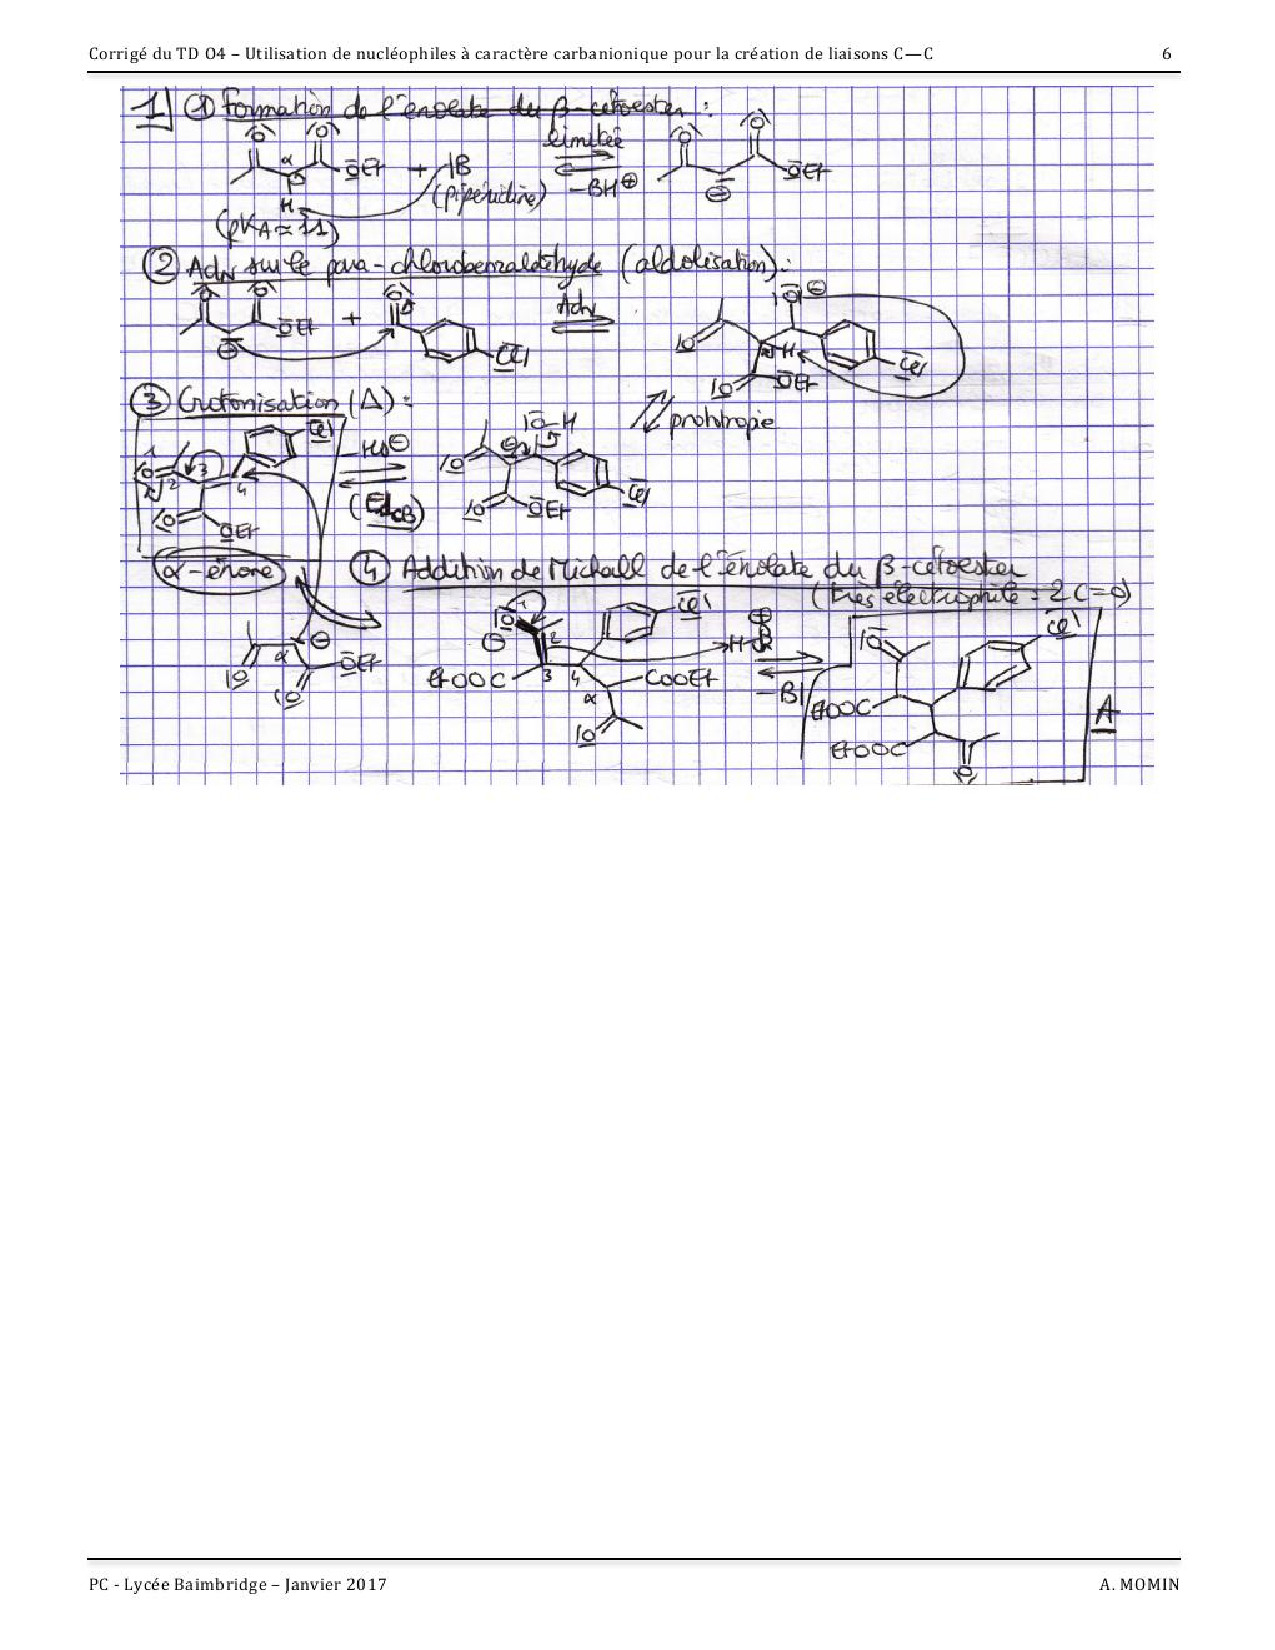 Corrigé du TD 04 – Utilisation de nucléophiles à caractère carbanionique pour la création de liaisons C—C 6
1] ① Formation de l'énolate du β-cétoester :
limitée
α OEt + |B
(pipéridine) -BH⊕ ⊖ OEt
H
(pKA ≈ 11)
② AdN sur le para-chlorobenzaldéhyde (aldolisation) :
OEt + AdN
⊖ Cl
H Cl
OEt
③ Crotonisation (Δ) :
prototropie
Cl -HO⊖ O-H
1 2 3 4
(E1cB) Cl
OEt OEt
α-énone ④ Addition de Michaël de l'énolate du β-cétoester
(très électrophile : 2 C=O)
⊖ Cl ⊕ Cl
α OEt EtOOC 3 4 COOEt H-B
α -B| EtOOC A
EtOOC
PC - Lycée Baimbridge – Janvier 2017 A. MOMIN